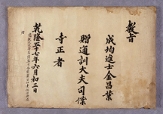 教旨
成均進士金昌業
贈通訓大夫司僕
寺正者
乾隆二十七年六月初二日